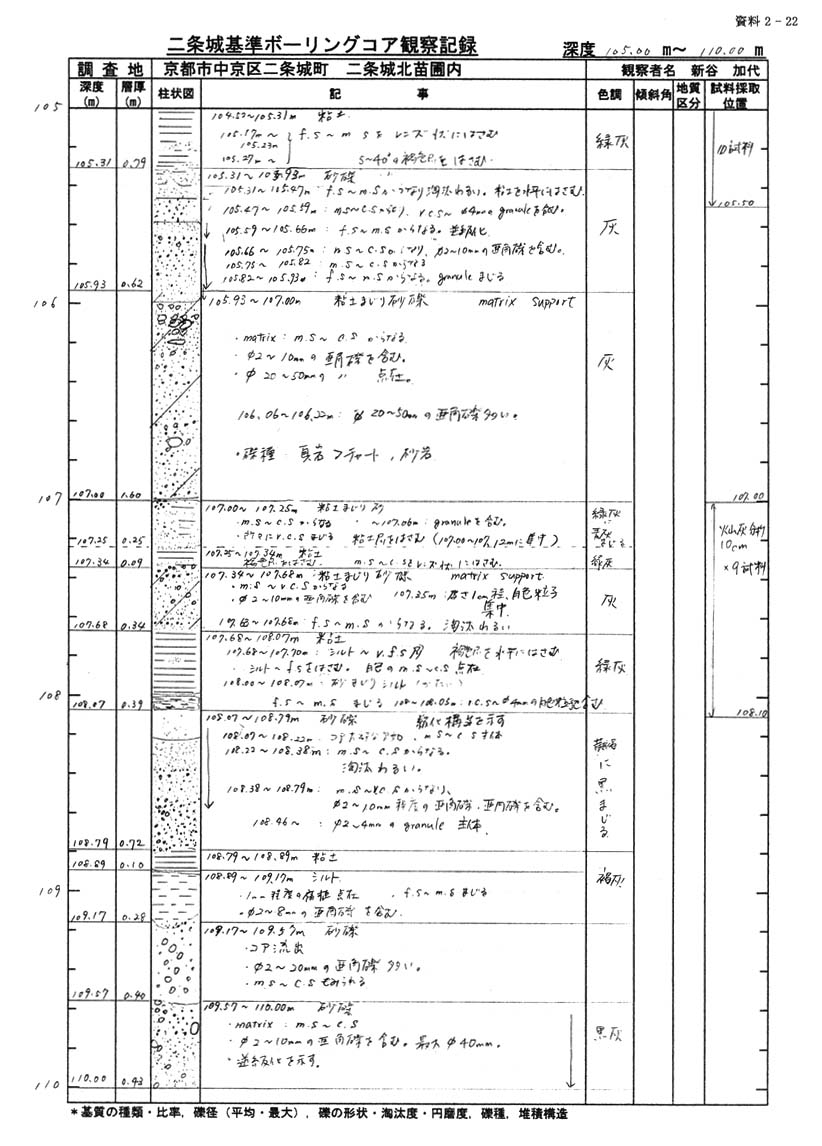 資料 2 - 22
二条城基準ボーリングコア観察記録 深度 105.00 m～ 110.00 m
調 査 地 京都市中京区二条城町 二条城北苗圃内 観察者名 新谷 加代
深度(m) 層厚(m) 柱状図 記 事 色調 傾斜角 地質区分 試料採取位置
105
104.52～105.31m 粘土
105.17m～105.23m f.s～m s をレンズ状にはさむ
105.27m～
をはさむ
緑灰
試料
105.31 0.79
105.31～105.93m 砂礫
105.31～105.47m: f.s～m.sからなり淘汰わるい。粘土を水平にはさむ
105.50
105.47～105.59m: m.s～c.sからなり、v.c.s～φ4mmのgranuleを含む。
105.59～105.66m: f.s～m.sからなる。
灰
105.66～105.75m: m.s～c.sからなり、φ2～10mmの亜角礫を含む。
105.75～105.82: m.s～c.sからなる
105.82～105.93m: f.s～m.sからなる。granuleまじる
105.93 0.62
106
105.93～107.00m 粘土まじり砂礫 matrix support
・matrix: m.s～c.sからなる
・φ2～10mmの亜角礫を含む。
・φ20～50mmの 〃 点在。
灰
106.06～106.22m: φ20～50mmの亜角礫多い。
・礫種 頁岩＞チャート,砂岩
107 107.00 1.60 107.00
107.00～107.25m 粘土まじり砂
・m.s～c.sからなる ～107.06m: granuleを含む。
・所々にv.c.sまじる 粘土片をはさむ (107.00～107.12mに集中)
緑灰
まじる
107.25 0.25
火山灰分析
10cm
×9試料
107.25～107.34m 粘土
m.s～c.sをレンズ状にはさむ
緑灰
107.34 0.09
107.34～107.68m: 粘土まじり砂礫 matrix support
・m.s～v.c.sからなる
・φ2～10mmの亜角礫を含む 107.35m: 厚さ1cm程、白色粒子集中
灰
107.63～107.68m: f.s～m.sからなる 淘汰わるい
107.68 0.34
107.68～108.07m 粘土
107.68～107.70m: シルト～v.f.s 水平にはさむ
・シルト～f.sをはさむ。白色のm.s～c.s点在
緑灰
108.00～108.07m 砂まじりシルト
108
f.s～m.sまじる
108.07 0.39
108.10
108.07～108.79m 砂礫 級化構造を示す
108.07～108.22m m.s～c.s主体
108.22～108.38m: m.s～c.sからなる。
淘汰わるい。
に黒まじる
108.38～108.79m: m.s～v.c.sからなり、
φ2～10mm程度の亜角礫、亜円礫を含む。
108.46～ : φ2～4mmのgranule主体
108.79 0.72
108.79～108.89m 粘土
108.89 0.10
108.89～109.17m シルト
・1mm程度の 点在 f.s～m.sまじる
・φ2～8mmの亜角礫を含む
褐灰
109
109.17 0.28
109.17～109.57m 砂礫
・コア流出
・φ2～20mmの亜角礫多い。
・m.s～c.sもみられる
109.57 0.40
109.57～110.00m 砂礫
・matrix: m.s～c.s
・φ2～10mmの亜角礫を含む。最大φ40mm。
・逆級化を示す。
黒灰
110 110.00 0.43
＊基質の種類・比率, 礫径（平均・最大）, 礫の形状・淘汰度・円磨度, 礫種, 堆積構造